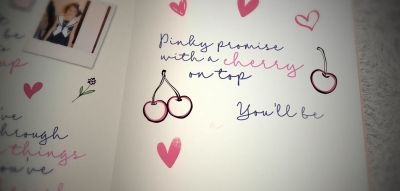 've
through
things
you've
Pinky promise
with a cherry
on top
You'll be